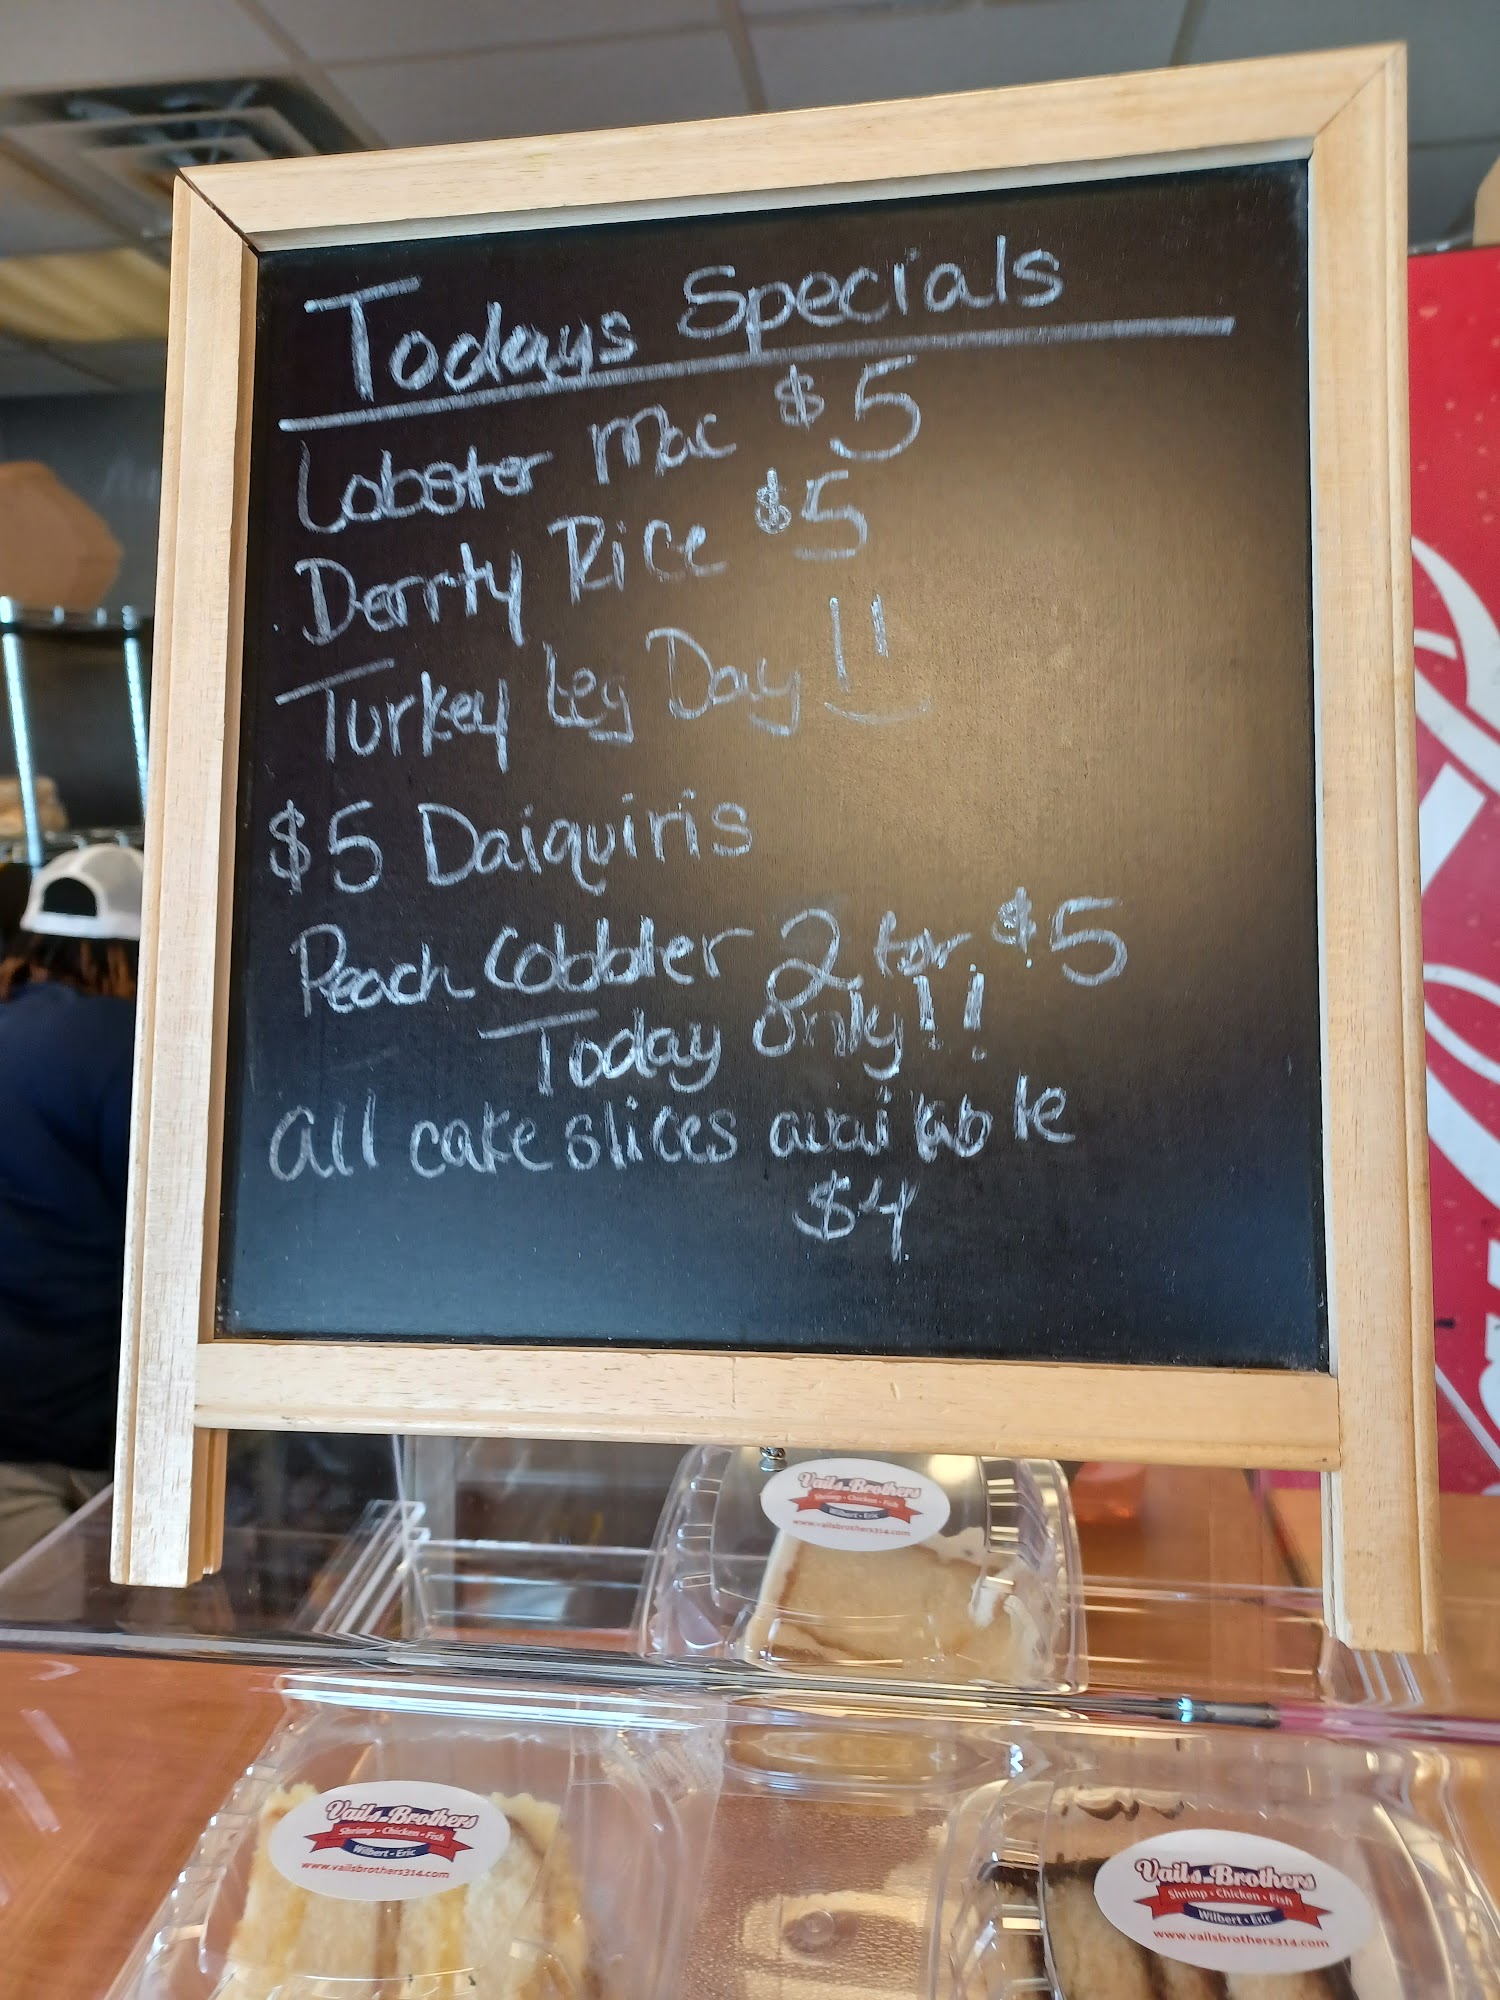 Todays Specials
Lobster Mac $5
Derrty Rice $5
Turkey Leg Day !!
$5 Daiquiris
Peach Cobbler 2 for $5
Today only!!
all cake slices available
$4
Vails Brothers
Shrimp • Chicken • Fish
Wilbert • Eric
www.vailsbrothers314.com
Vails Brothers
Shrimp • Chicken • Fish
Wilbert • Eric
www.vailsbrothers314.com
Vails Brothers
Shrimp • Chicken • Fish
Wilbert • Eric
www.vailsbrothers314.com